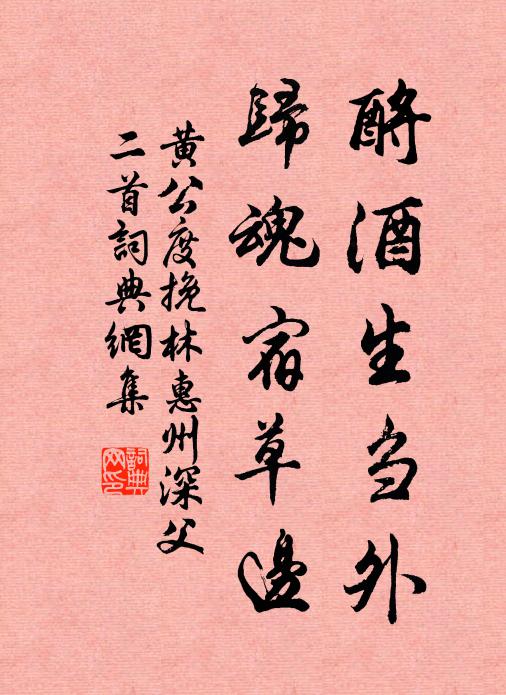 酹酒生芻外
歸魂宿草邊
黃公度挽林惠州深父
二首詞典網集
詞典網印